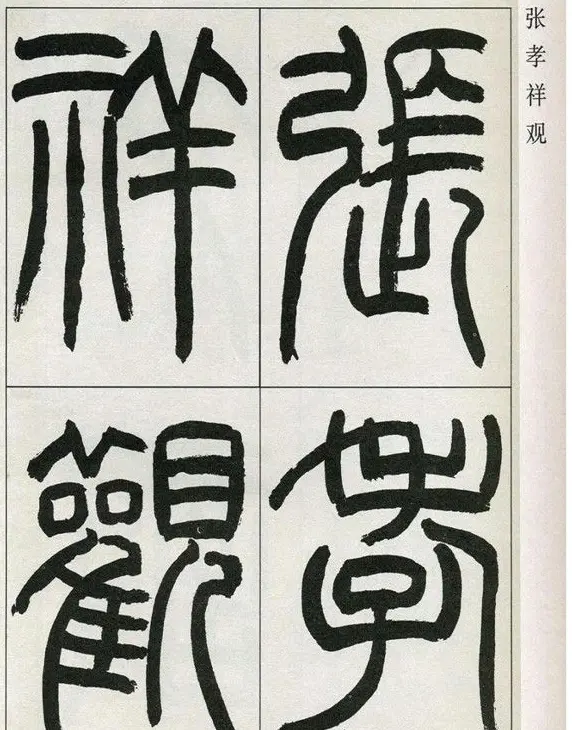 张孝祥观
張孝
祥觀